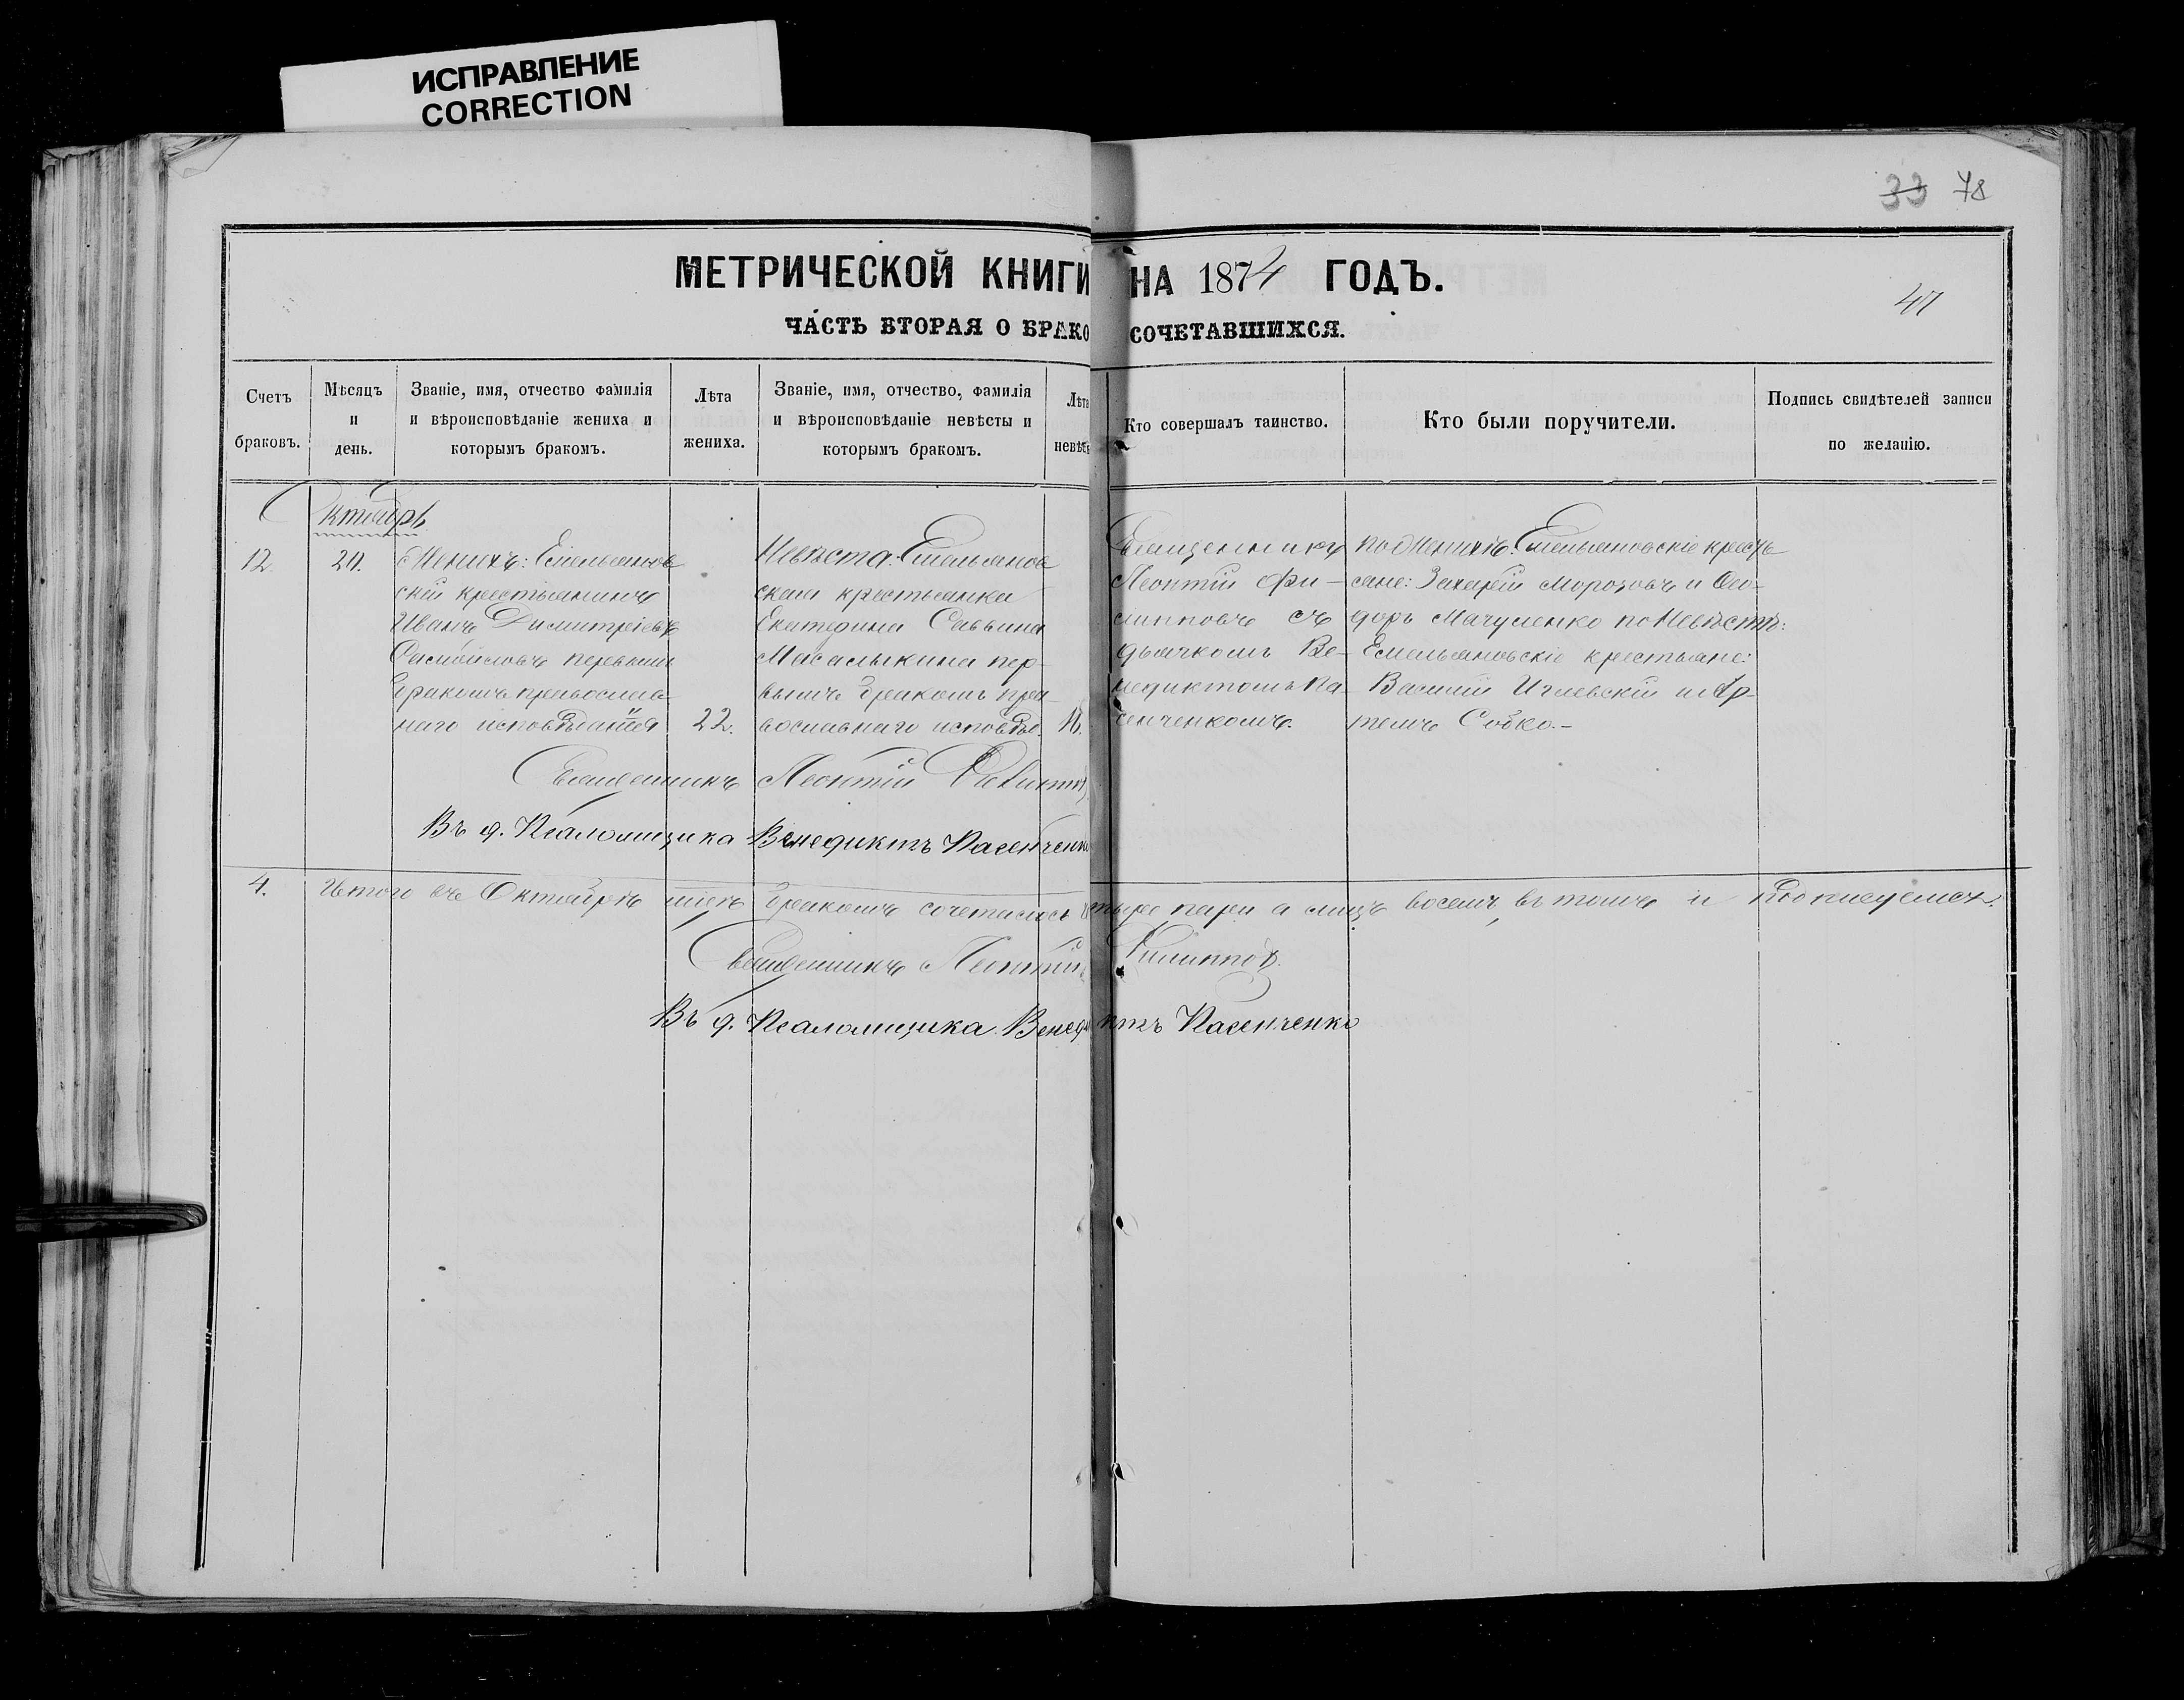 ИСПРАВЛЕНИЕ
CORRECTION
33 78
МЕТРИЧЕСКОЙ КНИГИ НА 1874 ГОДЪ.
47
ЧАСТЬ ВТОРАЯ О БРАКОСОЧЕТАВШИХСЯ.
Счетъ браковъ.
Мѣсяцъ и день.
Званіе, имя, отчество фамилія и вѣроисповѣданіе жениха и которымъ бракомъ.
Лѣта жениха.
Званіе, имя, отчество, фамилія и вѣроисповѣданіе невѣсты и которымъ бракомъ.
Лѣта невѣс
Кто совершалъ таинство.
Кто были поручители.
Подпись свидѣтелей записи по желанію.
Октябрь
12. 20.
Женихъ: Емельянов
скій крестьянинъ
Иванъ Димитріевъ
первымъ
бракомъ православ-
наго исповѣданія 22.
Невѣста: Емельянов
ская крестьянка
Екатерина Саввина
Масалыкина пер-
вымъ бракомъ пра-
вославнаго исповѣд.
Священникъ
Леонтій Фи-
липповъ съ
дьячкомъ Ве-
недиктомъ Па
сенченкомъ.
по Женихѣ: Емельяновскіе кресть
яне: Захарій Морозовъ и Ѳео-
доръ Мачуленко по Невѣстѣ:
Емельяновскіе крестьяне:
Василій и Ар-
темъ Собко.-
Священникъ Леонтій Филиппов
Въ д. Псаломщика Венедиктъ Пасенченко
4. Итого въ Октябрѣ мцѣ бракомъ сочеталось четыре пары а лицъ восемь, въ томъ и подписуемся.
Священникъ Леонтій Филиппов.
Въ д. Псаломщика Венедиктъ Пасенченко